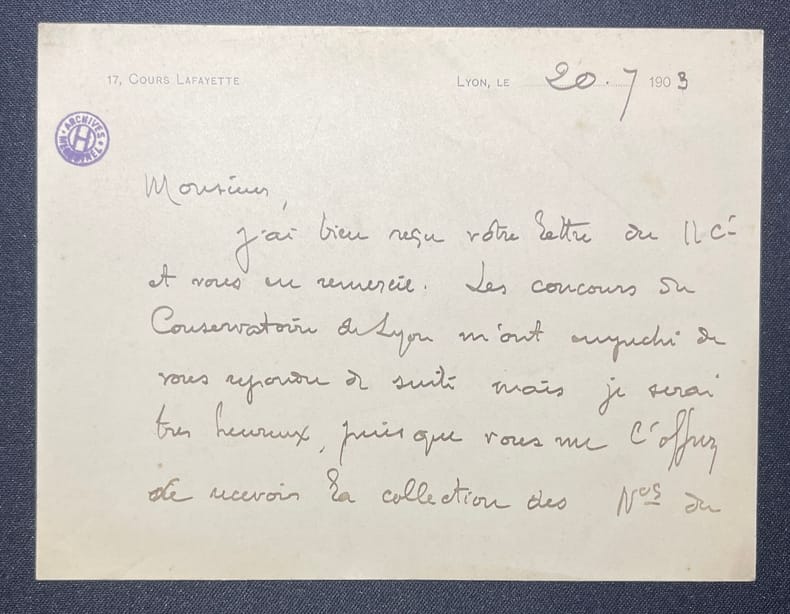 17, COURS LAFAYETTE
LYON, LE 20.7 1903
ARCHIVES
H
Monsieur,
j'ai bien reçu votre lettre du 11 Ct
et vous en remercie. Les concours du
Conservatoire de Lyon m'ont empeché de
vous repondre de suite mais je serai
tres heureux, puisque vous me l'offrez
de recevoir la collection des Nos du